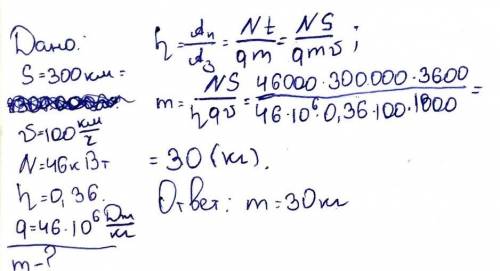 Дано:
S=300км=
υ=100 км/г
N=46кВт
η=0,36.
q=46·10⁶ Дж/кг
m-?
η = Aп/Aз = Nt/qm = NS/qmυ ;
m = NS/ηqυ = 46000·300000·3600/46·10⁶·0,36·100·1000 =
=30 (кг).
Ответ: m=30кг